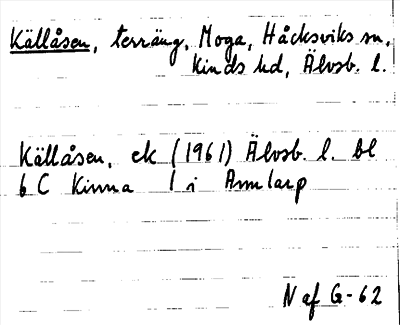 Källåsen, terräng, Moga, Håcksviks sn,
Kinds hd, Älvsb. l.
Källåsen, ek (1961) Älvsb. l. bl
6 C Kinna l i Armlarp
N af G-62